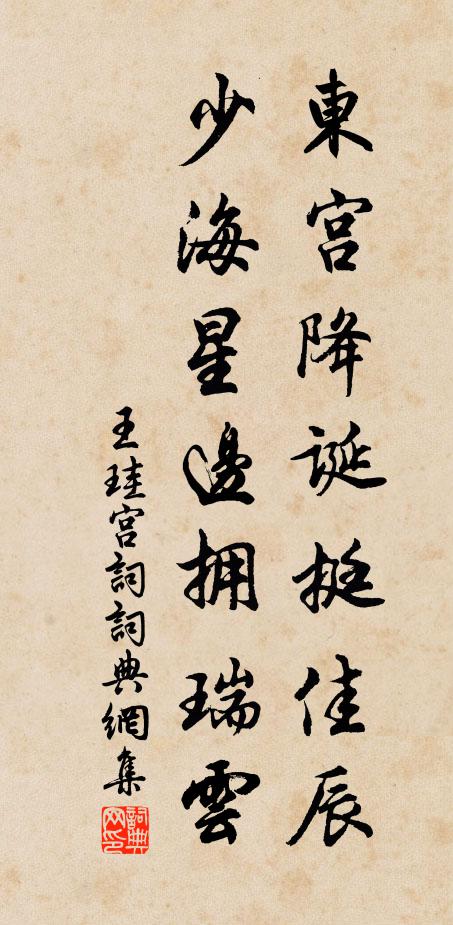 東宮降誕挺佳辰
少海星邊擁瑞雲
王珪宮詞詞典網集
詞典網印